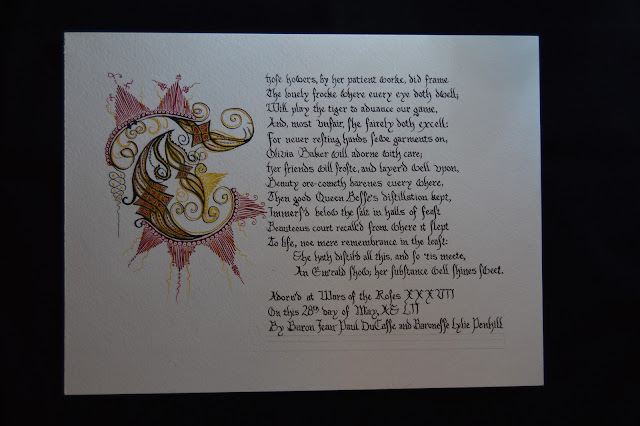 Those howers, by her patient worke, did frame
The louely frocke where euery eye doth dwell;
Will play the tiger to aduance our game,
And, most vnfair, she fairely doth excell:
For never resting hands sewe garments on,
Olivia Baker will adorne with care;
Her friends will froste, and layer'd well vpon,
Beauty ore-cometh barenes euery where,
Then good Queen Besse's distillation kept,
Immers'd below the salt in halls of feast
Beauteous court recall'd from where it slept
To life, noe mere remembrance in the least:
She hath distil'd all this, and so 'tis meete,
An Emerald show; her substance well shines sweet.
Adorn'd at Wars of the Roses XXXVII
On this 28th day of May, AS LII
By Baron Jean Paul DuCasse and Baronesse Lylie Penhill